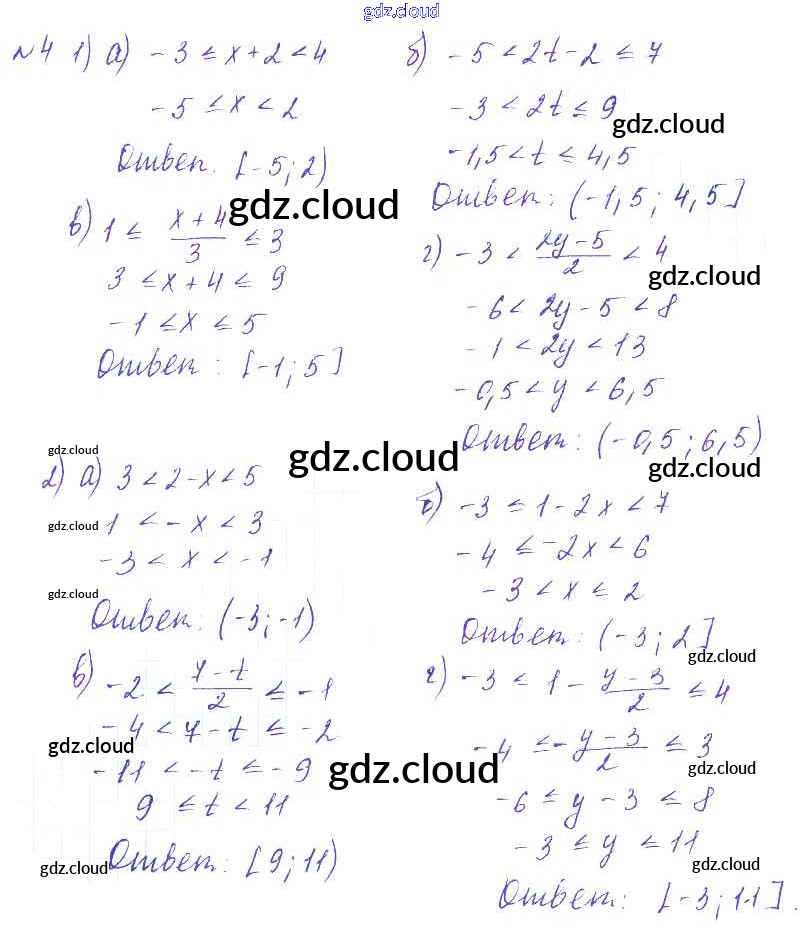 gdz.cloud
№4 1) а) -3 ≤ x+2 < 4
-5 ≤ x < 2
Ответ. [-5; 2)
б) -5 < 2t-2 ≤ 7
-3 < 2t ≤ 9
gdz.cloud
-1,5 < t ≤ 4,5
Ответ: (-1,5; 4,5]
gdz.cloud
в) 1 ≤ (x+4)/3 ≤ 3
3 ≤ x+4 ≤ 9
-1 ≤ x ≤ 5
Ответ: [-1; 5]
г) -3 < (2y-5)/2 < 4
gdz.cloud
-6 < 2y-5 < 8
-1 < 2y < 13
-0,5 < y < 6,5
Ответ: (-0,5; 6,5)
gdz.cloud
gdz.cloud
gdz.cloud
2) а) 3 < 2-x < 5
gdz.cloud
1 < -x < 3
-3 < x < -1
gdz.cloud
Ответ: (-3; -1)
б) -3 ≤ 1-2x < 7
-4 ≤ -2x < 6
-3 < x ≤ 2
Ответ: (-3; 2]
gdz.cloud
в) -2 < (7-t)/2 ≤ -1
-4 < 7-t ≤ -2
gdz.cloud
-11 < -t ≤ -9
gdz.cloud
9 ≤ t < 11
Ответ: [9; 11)
gdz.cloud
г) -3 < 1 - (y-3)/2 ≤ 4
-4 ≤ -(y-3)/2 ≤ 3
gdz.cloud
-6 ≤ y-3 ≤ 8
-3 ≤ y ≤ 11
gdz.cloud
Ответ: [-3; 11].